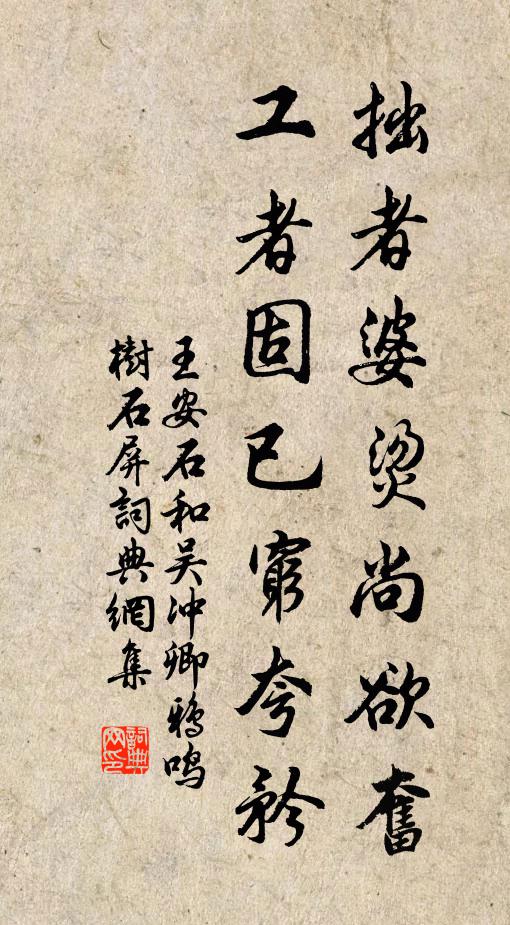 拙者婆燙尚欲奮
工者固已窮夸矜
王安石和吴冲卿鴉鸣
樹石屏詞典網集
詞典
网印